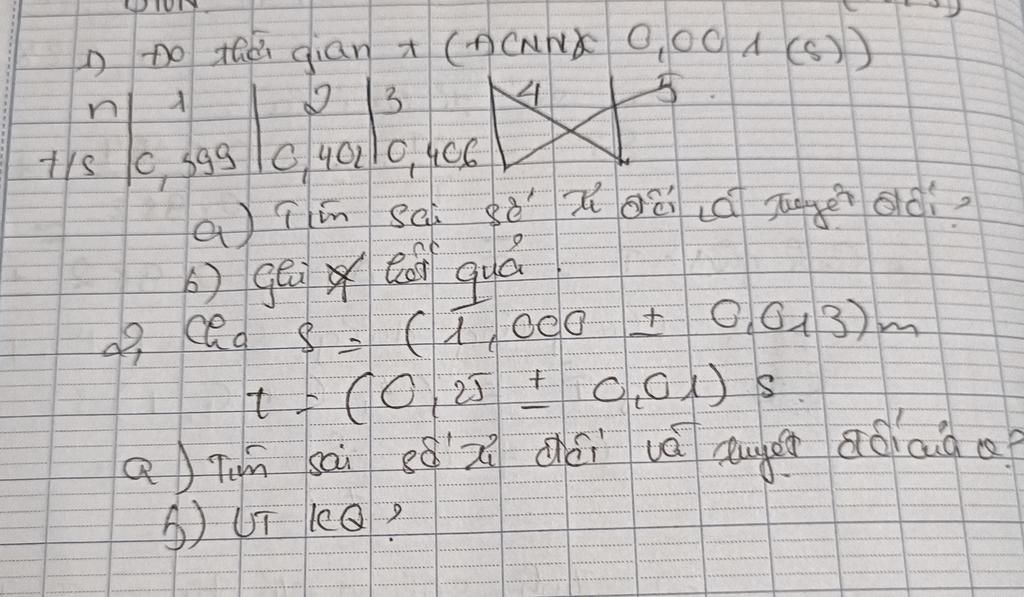 1) Đo thời gian t (ĐCNN 0,001 (s))
n 1 2 3 4 5
t/s 0,399 0,402 0,406
a) Tìm sai số tỉ đối và tuyệt đối?
b) ghi kết quả
2, Cho s = (1,000 ± 0,013) m
t = (0,25 ± 0,01) s
a) Tìm sai số tỉ đối và tuyệt đối của
b) VT KQ?